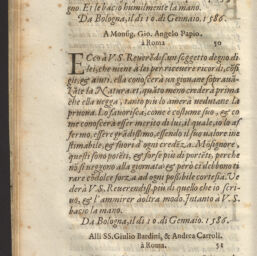 gno. Et le bacio humilmente la mano.
Da Bologna, il dì 10. di Gennaio. 1586.
A Monsig. Gio. Angelo Papio.
à Roma 50
ECco à V. S. Reuerẽdiss. un soggetto degno di
lei, che uiene à lei per riceuere ricordi, cõsi
gli, & aiuti. ella conoscerà un giouane sopra auã
zãte la Natura, et quãto meno crederà prima
che ella uegga, tanto più lo amerà uedutane la
pruoua. Lo fauorisca, come è costume suo, & co
me conoscerà esser merito di lui, al quale, io lo af
fermo, essere grãdissimo, essendo il suo ualore ine
stimabile, & fuori d'ogni credẽza. Mõsignore,
questi sono poeti, & forse più di poeti, perche
nõ si reggono alla giornata, & però si debbono ti
rare cõ dolce forza ad ogni possibile cortesia. Ve
derà V. S. Reuerendiss. più di quello che io scri-
uo, & l'ammirer à oltra modo. Intanto à V. S.
bacio la mano.
Da Bologna, il dì 10. di Gennaio. 1586.
Alli SS. Giulio Bardini, & Andrea Carroli.
à Roma. 51